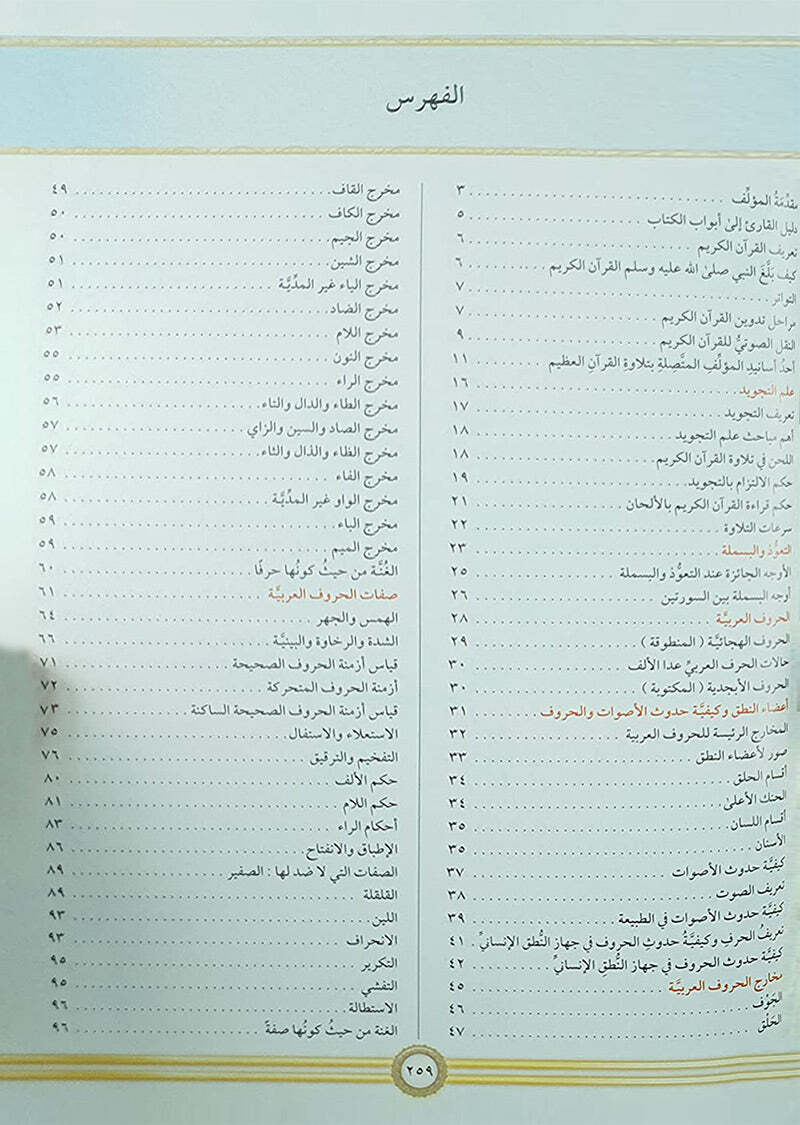 الفهرس
مقدِّمَةُ المؤلِّف ٣
دليل القارئ إلىٰ أبواب الكتاب ٥
تعريف القرآن الكريم ٦
كيف بَلَّغَ النبي صلىٰ الله عليه وسلم القرآن الكريم ٦
التواتر ٧
مراحل تدوين القرآن الكريم ٧
النقل الصوتيُّ للقرآن الكريم ٩
أحدُ أسانيدِ المؤلِّفِ المتَّصِلةِ بتلاوةِ القرآنِ العظيم ١١
علم التجويد ١٦
تعريف التجويد ١٧
أهم مباحث علم التجويد ١٨
اللحن في تلاوة القرآن الكريم ١٨
حكم الالتزام بالتجويد ١٩
حكم قراءة القرآن الكريم بالألحان ٢١
سرعات التلاوة ٢٢
التعوُّذ والبسملة ٢٣
الأوجه الجائزة عند التعوُّذ والبسملة ٢٥
أوجه البسملة بين السورتين ٢٦
الحروف العربيَّة ٢٨
الحروف الهجائيَّة ( المنطوقة ) ٢٩
حالات الحرف العربيِّ عدا الألف ٣٠
الحروف الأبجدية ( المكتوبة ) ٣٠
أعضاء النطق وكيفيَّة حدوث الأصوات والحروف ٣١
المخارج الرئيسة للحروف العربية ٣٢
صور لأعضاء النطق ٣٣
أقسام الحلق ٣٤
الحنك الأعلىٰ ٣٤
أقسام اللسان ٣٥
الأسنان ٣٥
كيفيَّة حدوث الأصوات ٣٧
تعريف الصوت ٣٨
كيفيَّة حدوث الأصوات في الطبيعة ٣٩
تعريفُ الحرفِ وكيفيَّةُ حدوثِ الحروف في جهاز النُّطق الإنسانيِّ ٤١
كيفيَّة حدوث الحروف في جهاز النُّطقِ الإنسانيِّ ٤٢
مخارج الحروف العربيَّة ٤٥
الجَوْف ٤٦
الحَلْق ٤٧
مخرج القاف ٤٩
مخرج الكاف ٥٠
مخرج الجيم ٥٠
مخرج الشين ٥١
مخرج الياء غير المدِّيَّة ٥١
مخرج الضاد ٥٢
مخرج اللام ٥٣
مخرج النون ٥٥
مخرج الراء ٥٥
مخرج الطاء والدال والتاء ٥٦
مخرج الصاد والسين والزاي ٥٧
مخرج الظاء والذال والثاء ٥٧
مخرج الفاء ٥٨
مخرج الواو غير المدِّيَّة ٥٨
مخرج الباء ٥٩
مخرج الميم ٥٩
الغُنَّة من حيثُ كونُها حرفًا ٦٠
صفات الحروف العربيَّة ٦١
الهمس والجهر ٦٤
الشدة والرخاوة والبينيَّة ٦٦
قياس أزمنة الحروف الصحيحة ٧١
أزمنة الحروف المتحركة ٧٢
قياس أزمنة الحروف الصحيحة الساكنة ٧٣
الاستعلاء والاستفال ٧٥
التفخيم والترقيق ٧٦
حكم الألف ٨٠
حكم اللام ٨١
أحكام الراء ٨٣
الإطباق والانفتاح ٨٦
الصفات التي لا ضد لها : الصفير ٨٩
القلقلة ٨٩
اللين ٩٣
الانحراف ٩٣
التكرير ٩٥
التفشي ٩٥
الاستطالة ٩٦
الغنة من حيثُ كونُها صفةً ٩٦
٢٥٩